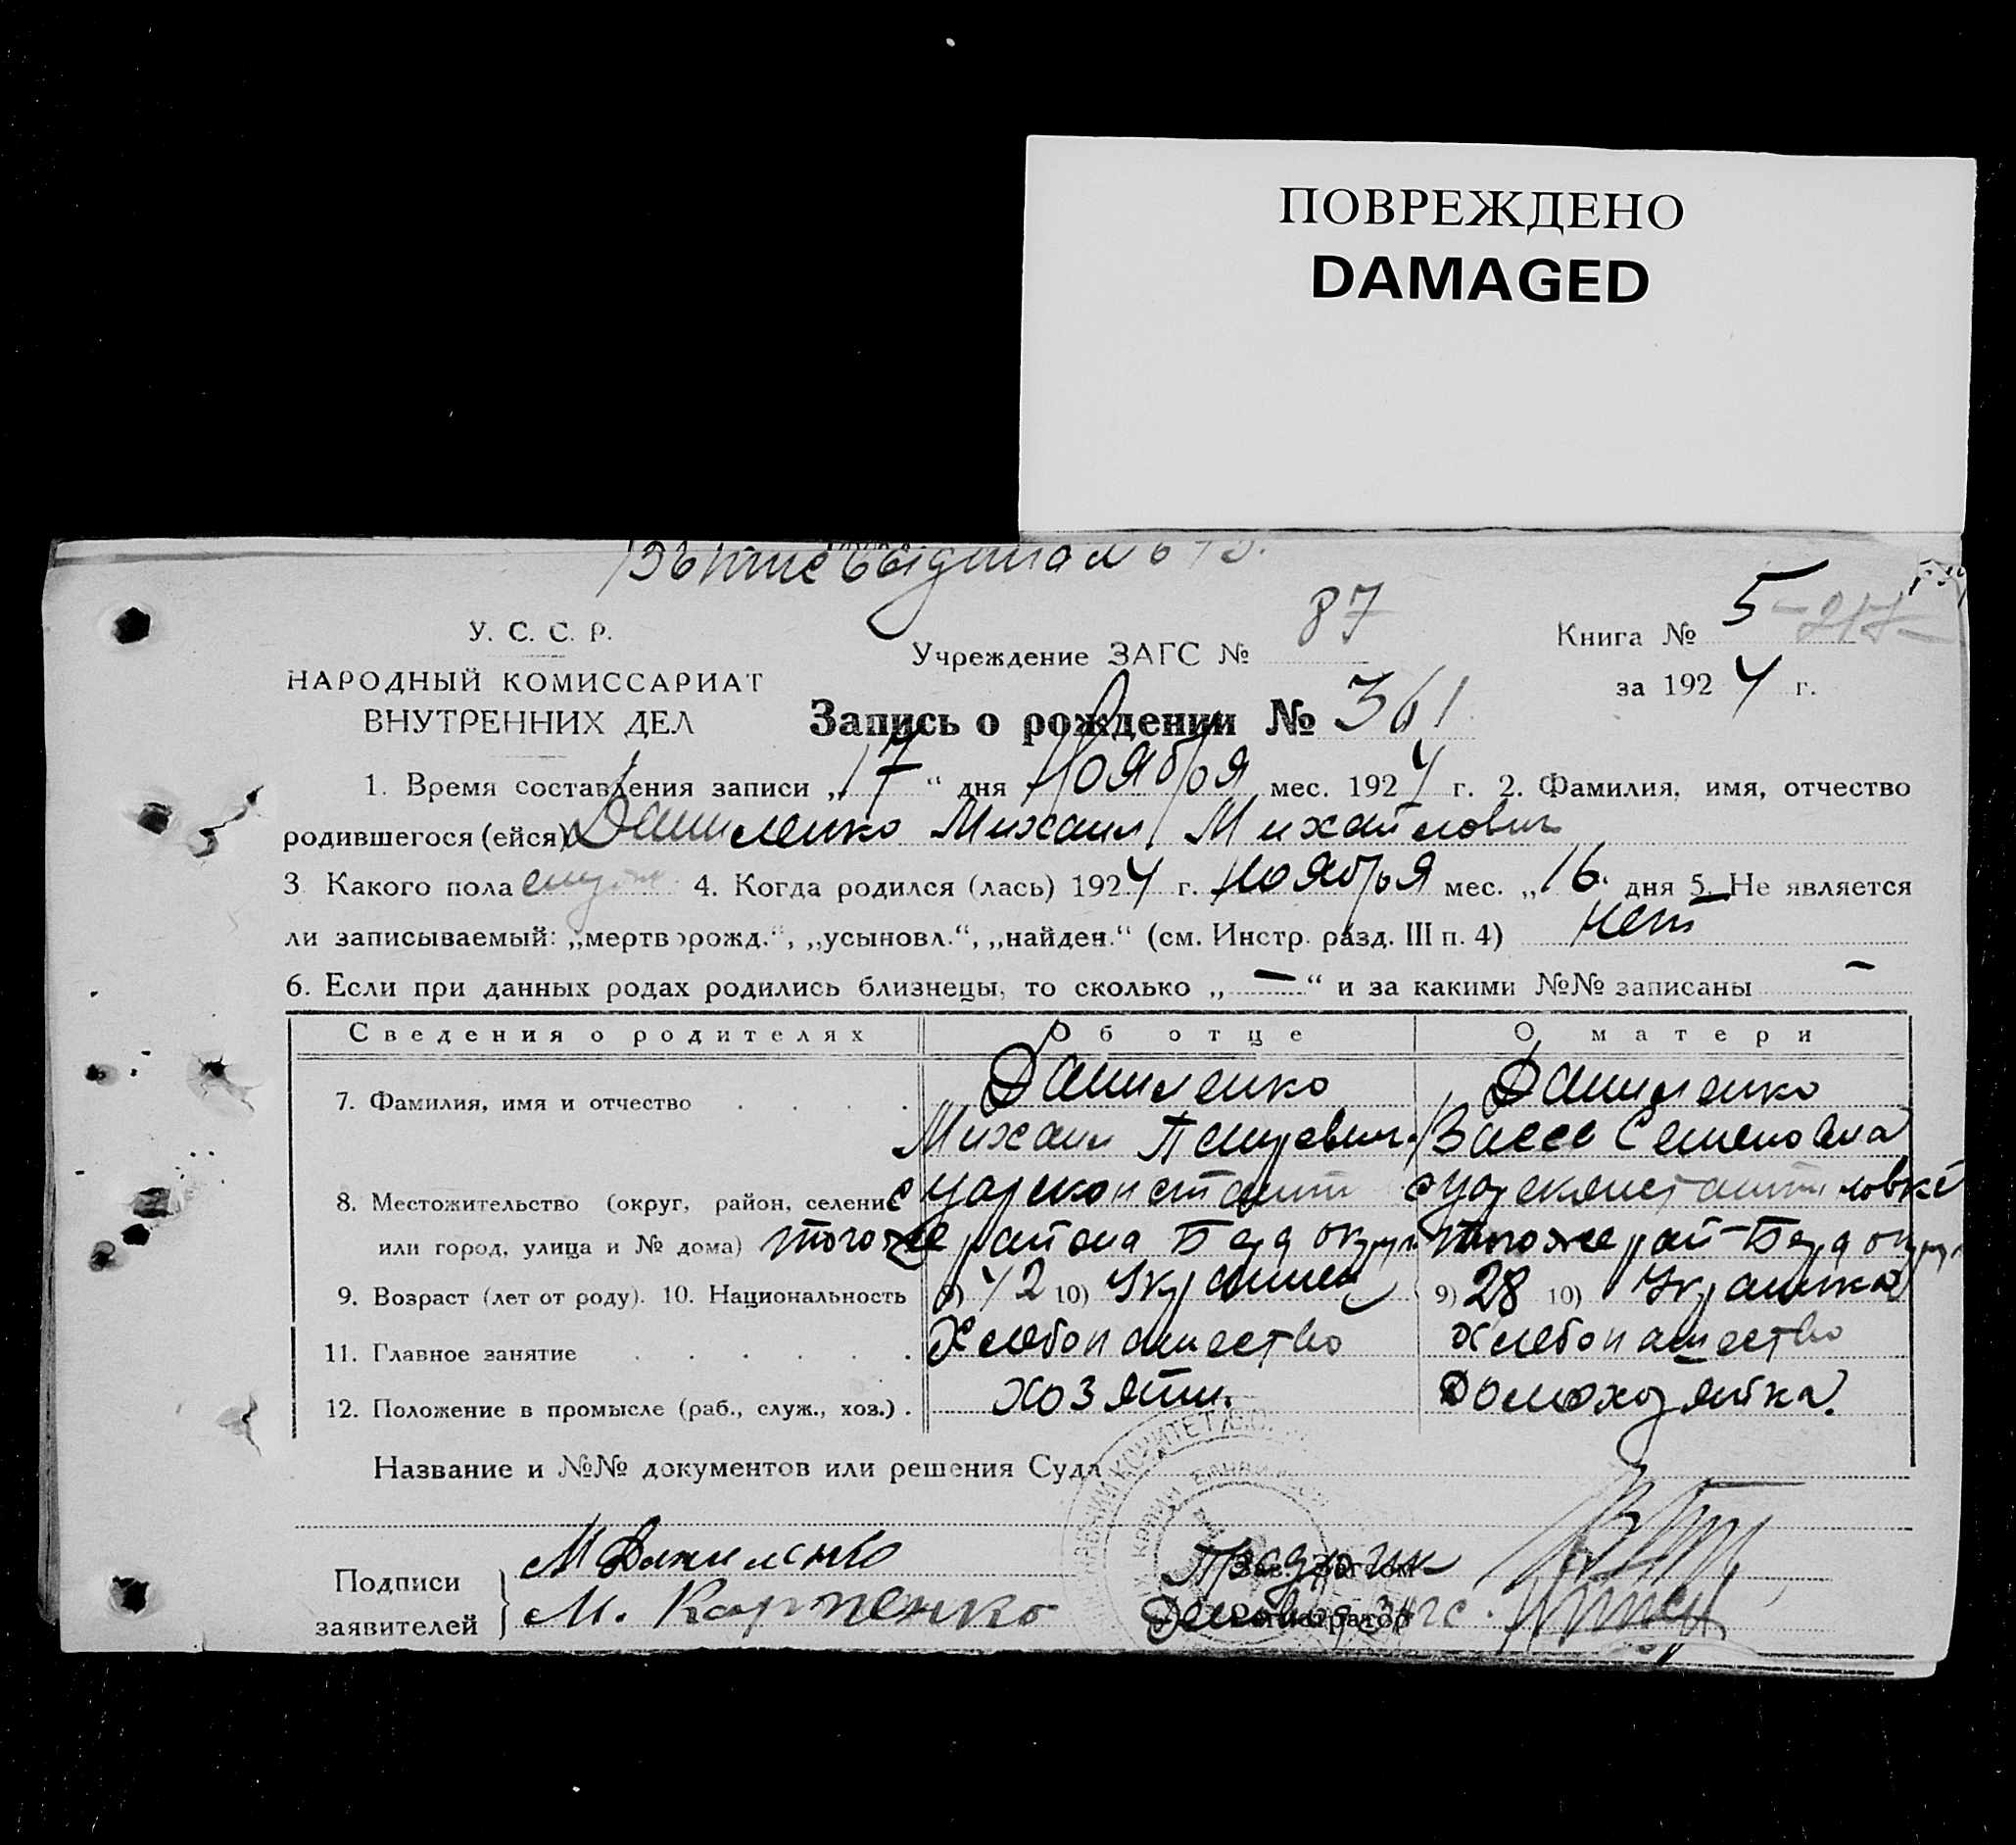 ПОВРЕЖДЕНО
DAMAGED
У. С. С. Р.
НАРОДНЫЙ КОМИССАРИАТ
ВНУТРЕННИХ ДЕЛ
Учреждение ЗАГС № 87
Книга № 5
за 1924 г.
Запись о рождении № 361
1. Время составления записи „17“ дня Ноября мес. 1924 г. 2. Фамилия, имя, отчество
родившегося (ейся) Даниленко Михаил Михайлович
3 Какого пола 4. Когда родился (лась) 1924 г. ноября мес. „16 дня 5. Не является
ли записываемый: „мертворожд.“, „усыновл.“, „найден.“ (см. Инстр. разд. III п. 4) нет
6. Если при данных родах родились близнецы, то сколько „—“ и за какими №№ записаны —
Сведения о родителях Об отце О матери
7. Фамилия, имя и отчество Даниленко Даниленко
Михаил Семеновна
8. Местожительство (округ, район, селение с Цареконстант с Цареконстантиновке
или город, улица и № дома) того же района Берд округ того же рай Берд округ
9. Возраст (лет от роду). 10. Национальность 9) 42 10) Украинец 9) 28 10) Украинка
11. Главное занятие Хлебопашество Хлебопашество
12. Положение в промысле (раб., служ., хоз.) хозяин. Домохозяйка.
Название и №№ документов или решения Суда
Подписи М Даниленко
заявителей М. Карпенко Регистратор